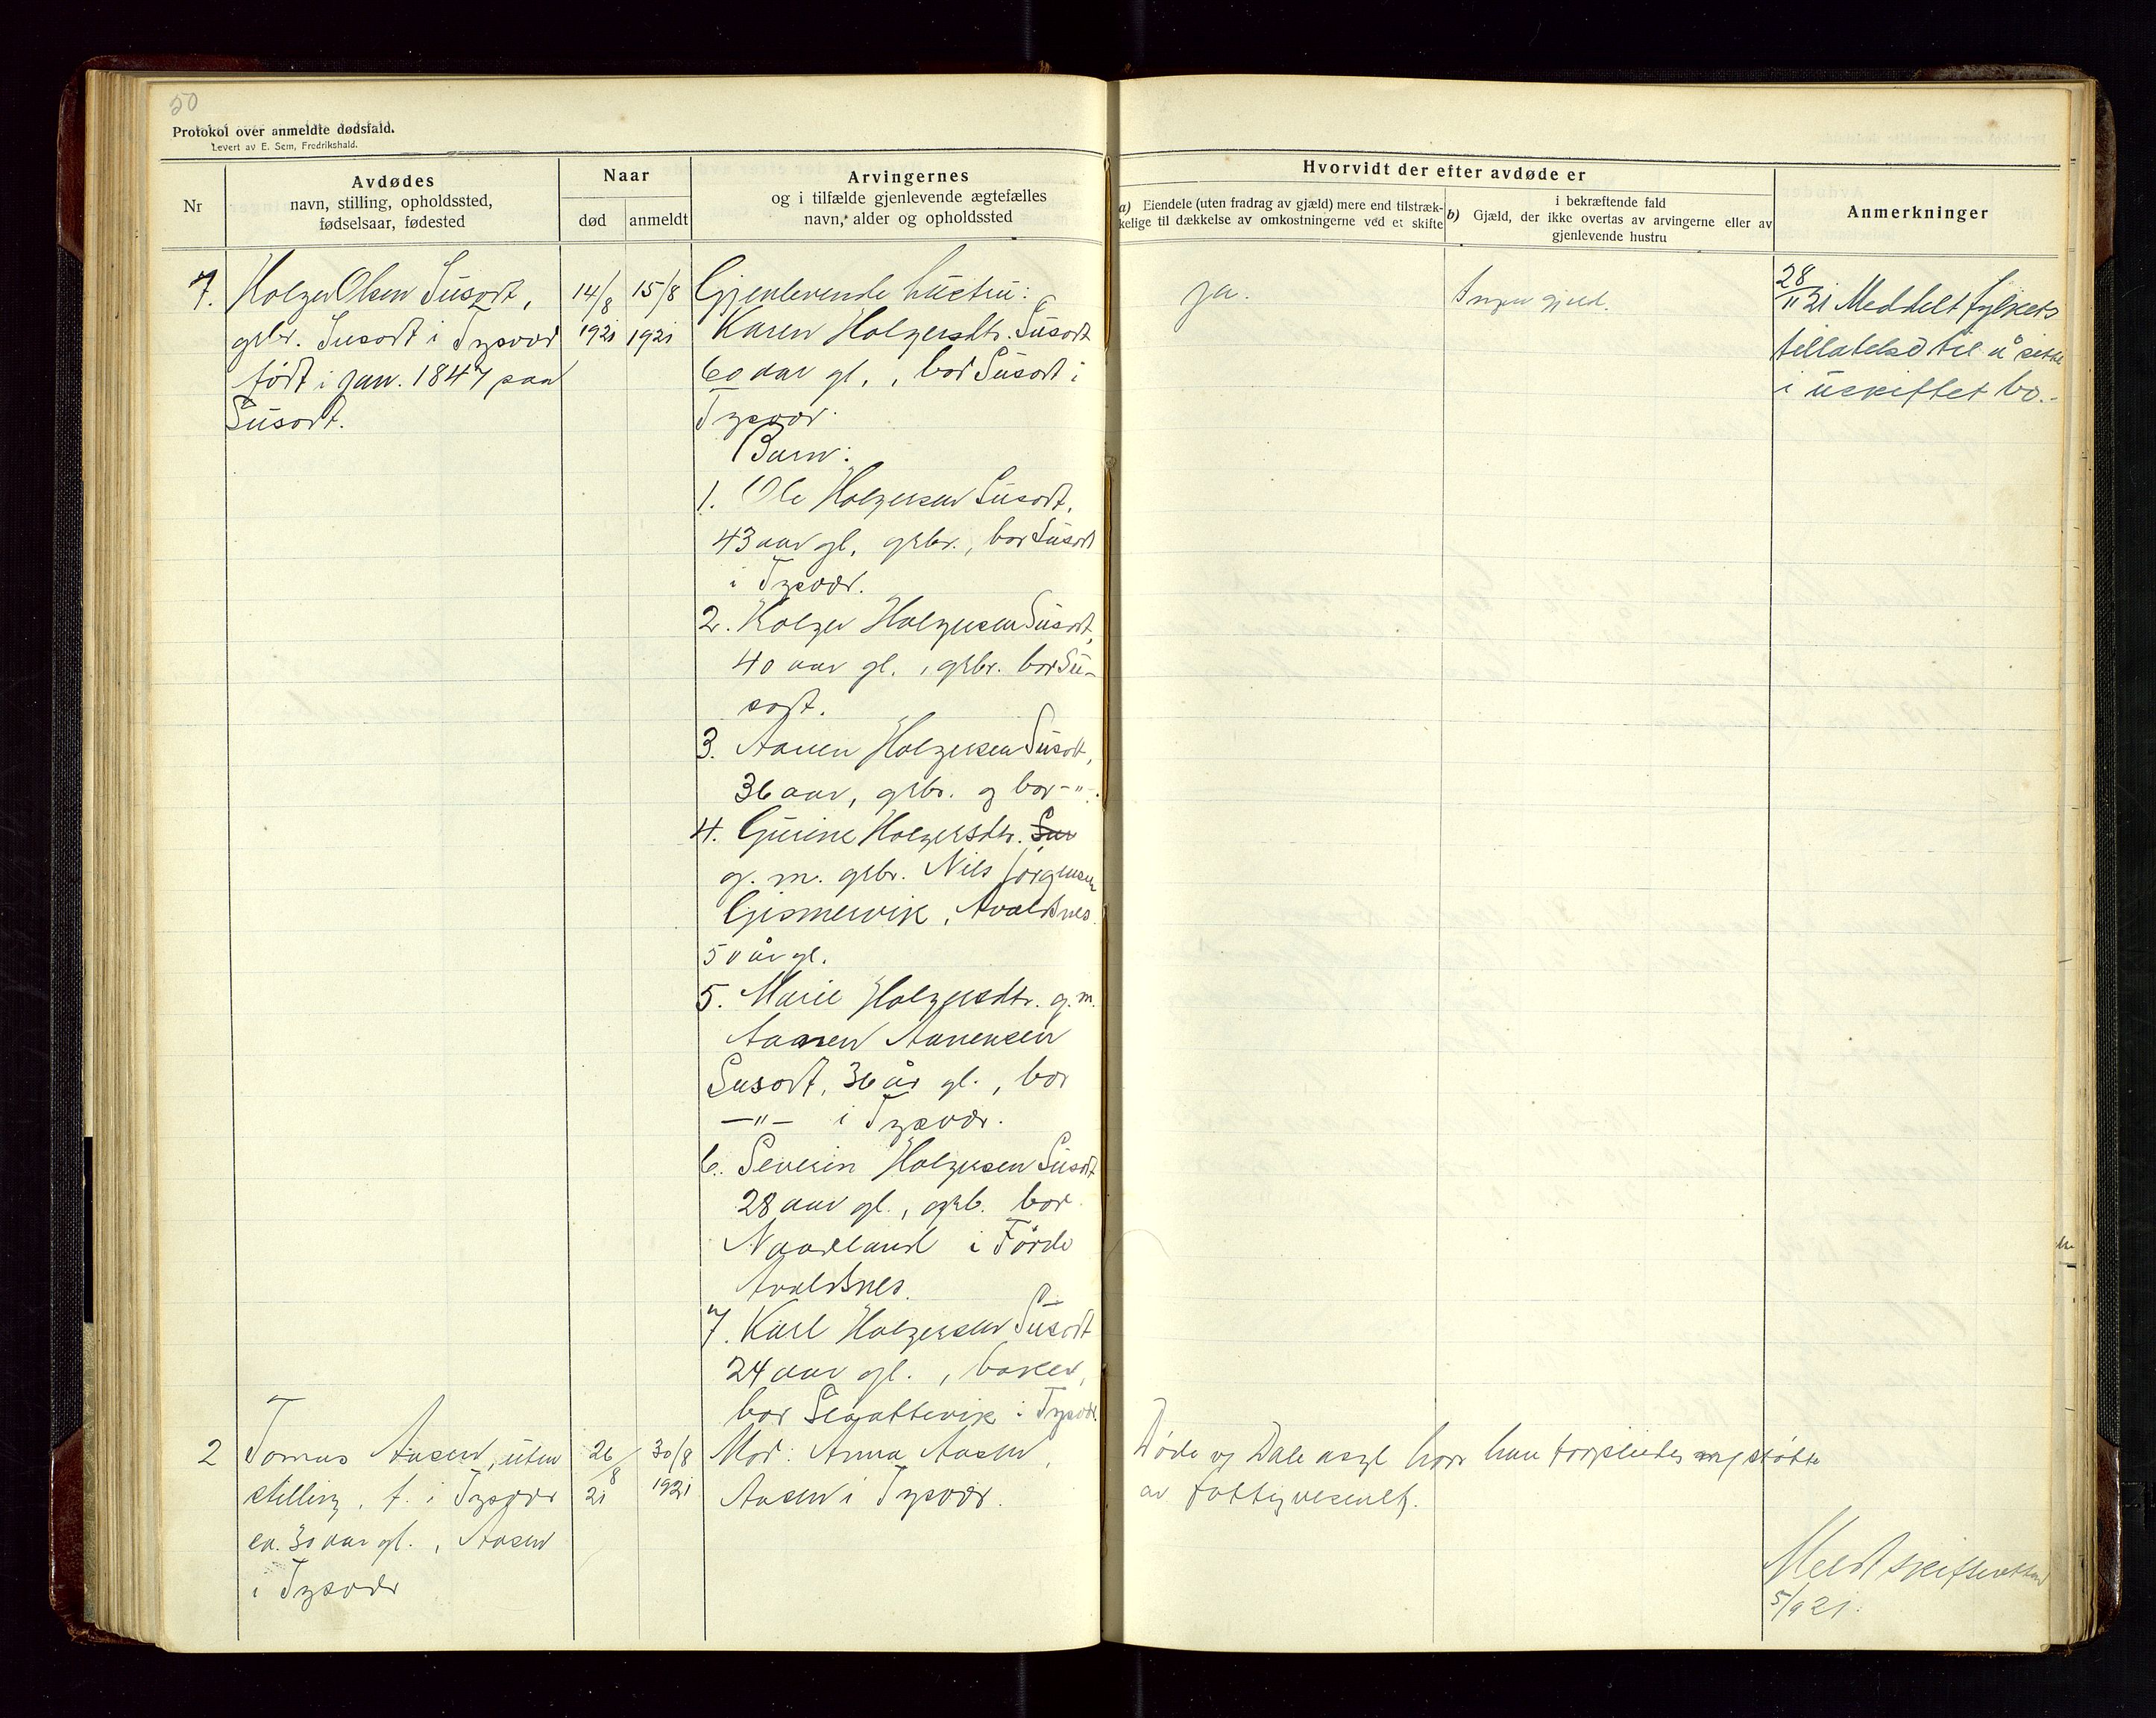 50
Protokol over anmeldte dødsfald.
Levert av E. Sem, Fredrikshald.
Nr
Avdødes
navn, stilling, opholdssted,
fødselsaar, fødested
Naar
død
anmeldt
Arvingernes
og i tilfælde gjenlevende ægtefælles
navn, alder og opholdssted
Hvorvidt der efter avdøde er
a) Eiendele (uten fradrag av gjæld) mere end tilstræk-
kelige til dækkelse av omkostningerne ved et skifte
i bekræftende fald
b) Gjæld, der ikke overtas av arvingerne eller av
gjenlevende hustru
Anmerkninger
7.
Holger Olsen Susort,
grbr. Susort i Tysvær
født i jan. 1847 paa
Susort.
14/8
1921
15/8
1921
Gjenlevende hustru:
Karen Holgersdtr. Susort
60 aar gl., bor Susort i
Tysvær.
Barn:
1. Ole Holgersen Susort,
43 aar gl, grbr., bor Susort
i Tysvær.
2. Holger Holgersen Susort,
40 aar gl., grbr. bor Su-
sort.
3. Aanen Holgersen Susort,
36 aar, grbr. og bor -"-.
4. Gurine Holgersdtr. Sus
g. m. grbr. Nils Jörgensen
Gismervik, Avaldsnes
50 år gl.
5. Marie Holgersdtr. g. m.
Aanen Aanensen
Susort, 36 år gl., bor
-"- i Tysvær.
6. Severin Holgersen Susort
28 aar gl., grb. bor
i Förde
Avaldsnes.
7. Karl Holgersen Susort
24 aar gl., baker,
bor Slaattevik i Tysvær.
ja.
Ingen gjeld.
28/11 21 Meddelt fylkets
tillatelse til å sitte
i uskiftet bo.-
2
Tomas Aasen, uten
stilling, f. i Tysvær
ca. 30 aar gl., Aasen
i Tysvær
26/8
21
30/8
1921
Mor: Anna Aasen,
Aasen i Tysvær.
Døde Dale asyl hvor han forpleides støtte
av fattigvesenet.
Meldt skifteretten
5/9 21.